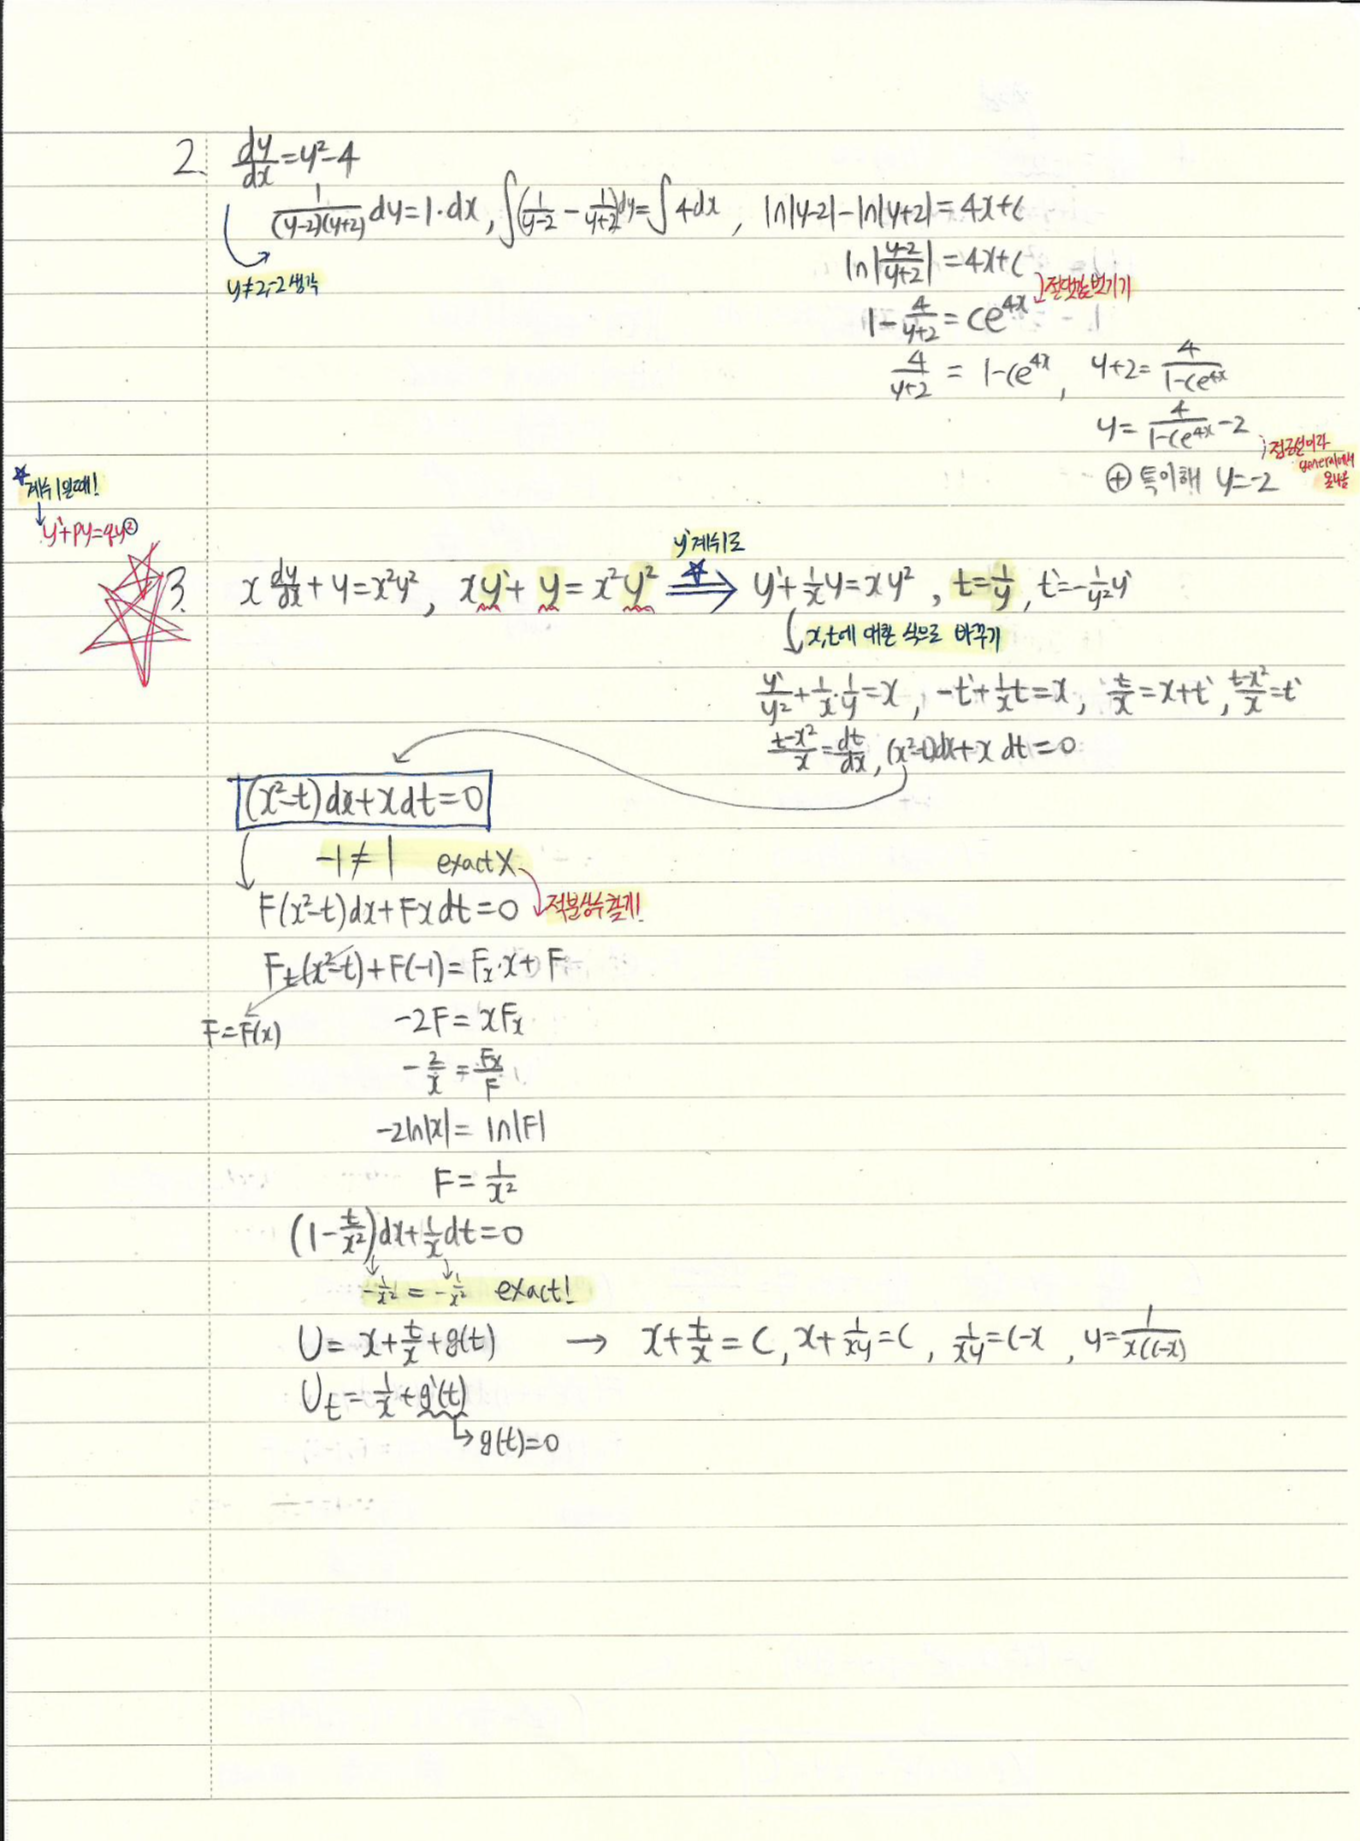 2. dy/dx = y²-4
1/((y-2)(y+2)) dy = 1·dx, ∫(1/(y-2) - 1/(y+2))dy = ∫4dx, ln|y-2|-ln|y+2| = 4x+C
y≠2,-2 생각
ln|(y-2)/(y+2)| = 4x+C
1 - 4/(y+2) = Ce^{4x} 절댓값 벗기기
4/(y+2) = 1-Ce^{4x}, y+2 = 4/(1-Ce^{4x})
y = 4/(1-Ce^{4x}) - 2
⊕ 특이해 y=-2 ; 점근선이라 general에서
☆ 계수 1일때!
y'+py=qy²
3. x dy/dx + y = x²y², xy'+y = x²y² ⇒ y'+(1/x)y = xy², t=1/y, t'=-(1/y²)y'
y'계수 1로
☆
x,t에 대한 식으로 바꾸기
y'/y² + 1/x·1/y = x, -t'+(1/x)t = x, t/x = x+t', (t-x²)/x = t'
(t-x²)/x = dt/dx, (x²-t)dx+x dt = 0
(x²-t)dx+xdt=0
-1≠1 exact X
F(x²-t)dx+Fxdt=0 적분상수 찾기!
F_t(x²-t)+F(-1)=F_x·x+F
F=F(x) -2F = xF_x
-2/x = F_x/F
-2ln|x| = ln|F|
F = 1/x²
(1-t/x²)dx+(1/x)dt=0
-1/x² = -1/x² exact!
U = x+t/x+g(t) → x+t/x = C, x+1/(xy) = C, 1/(xy) = C-x, y = 1/(x(C-x))
U_t = 1/x+g'(t)
↳ g(t)=0